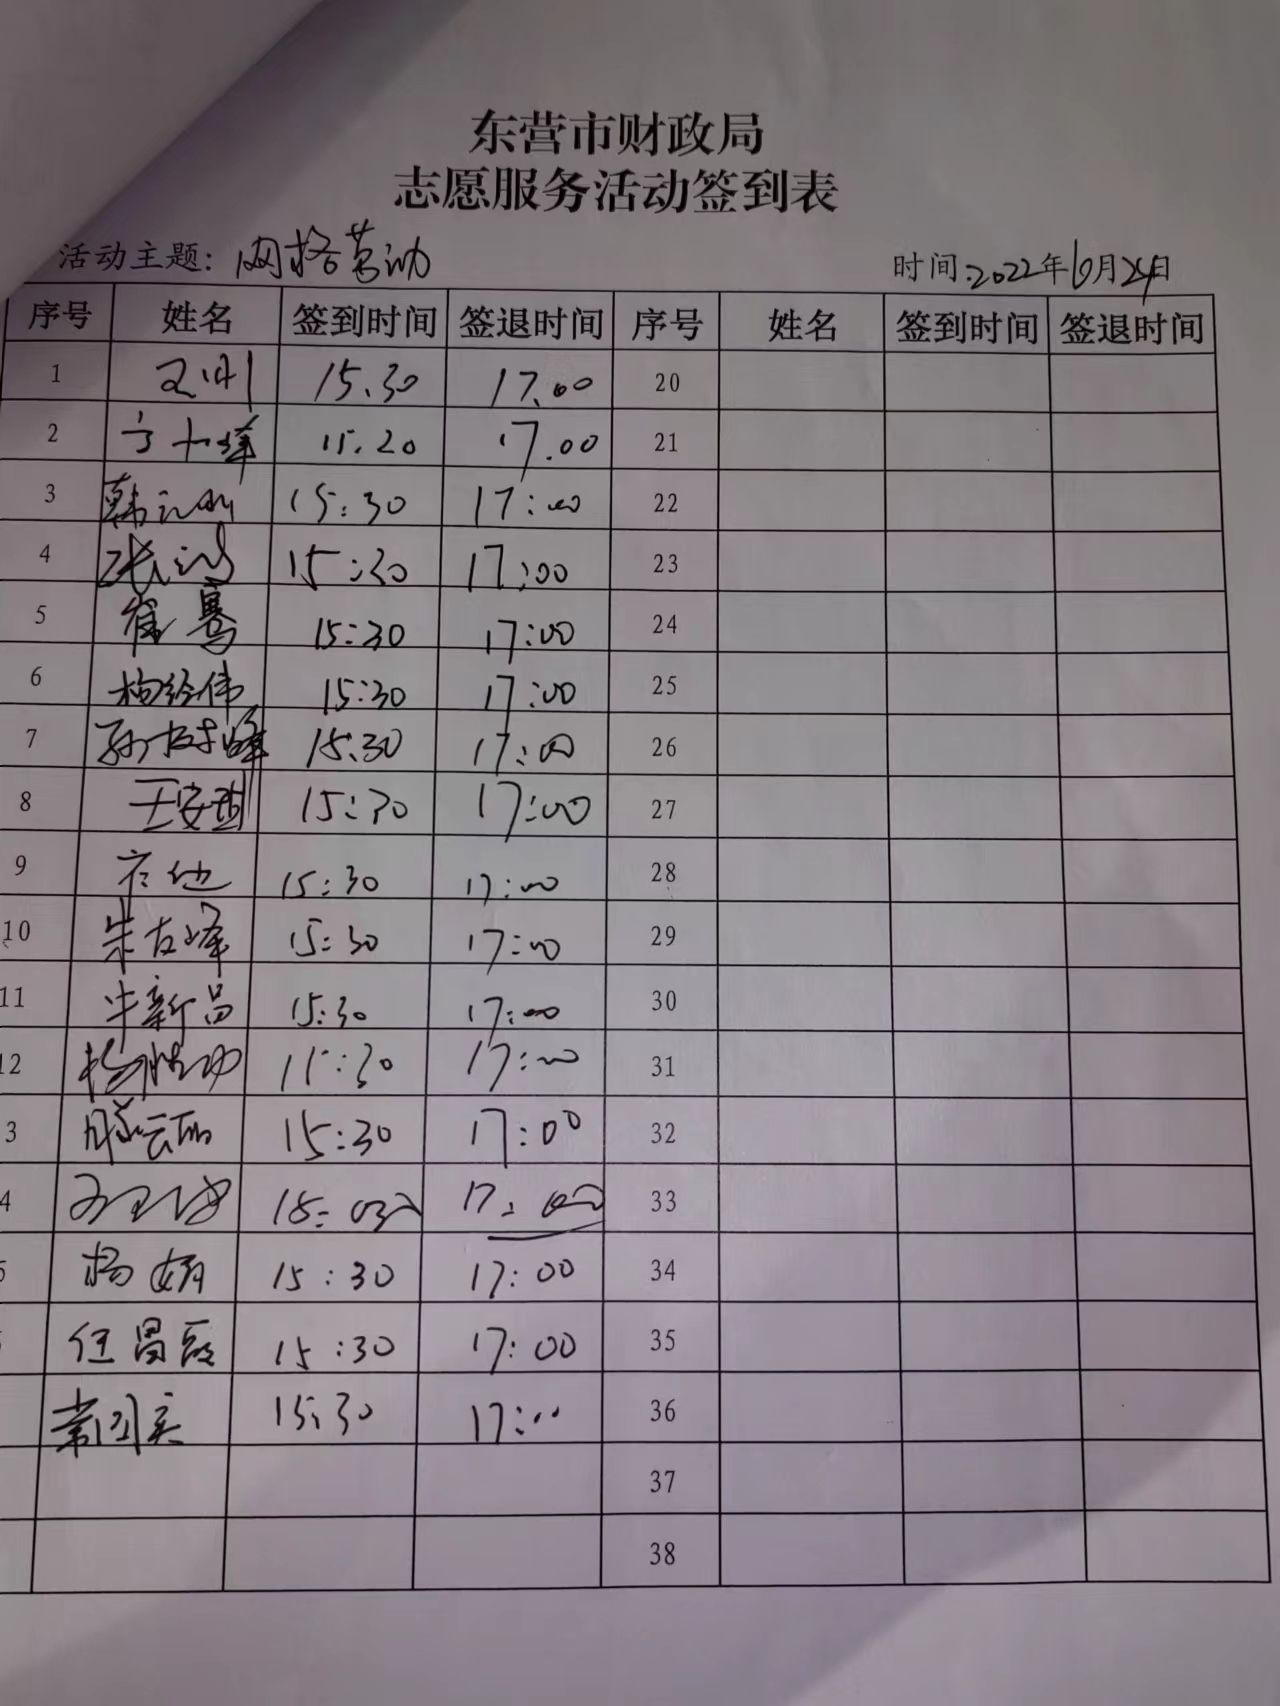 东营市财政局
志愿服务活动签到表
活动主题: 网格劳动 时间:2022年6月24日
序号 姓名 签到时间 签退时间 序号 姓名 签到时间 签退时间
1 15.30 17.00 20
2 15.20 17.00 21
3 15:30 17:00 22
4 15:30 17:00 23
5 崔骞 15:30 17:00 24
6 15:30 17:00 25
7 孙树峰 15:30 17:00 26
8 王安 15:30 17:00 27
9 15:30 17:00 28
10 朱友峰 15:30 17:00 29
11 牛新昌 15:30 17:00 30
12 15:30 17:00 31
3 滕云丽 15:30 17:00 32
4 17:00 33
5 杨娟 15:30 17:00 34
任昌 15:30 17:00 35
常国庆 15:30 17:00 36
37
38